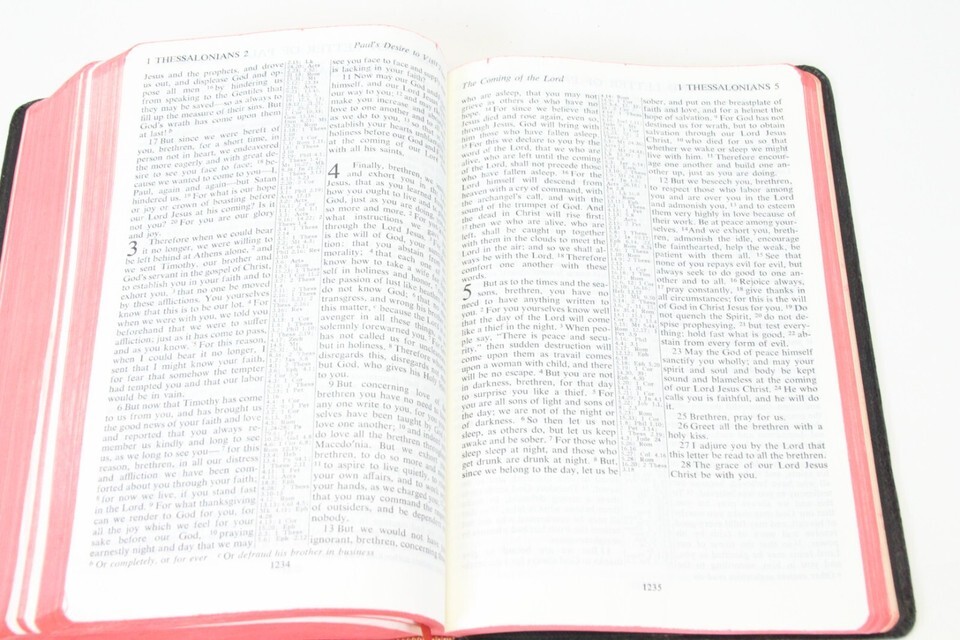 1 THESSALONIANS 2
Paul's Desire to Visit
Jesus and the prophets, and drove
us out, and displease God and op-
pose all men 16 by hindering us
from speaking to the Gentiles that
they may be saved—so as always to
fill up the measure of their sins. But
God's wrath has come upon them
at last! b
17 But since we were bereft of
you, brethren, for a short time, in
person not in heart, we endeavored
the more eagerly and with great de-
sire to see you face to face. 18 be-
cause we wanted to come to you—I,
Paul, again and again—but Satan
hindered us. 19 For what is our hope
or joy or crown of boasting before
our Lord Jesus at his coming? Is it
not you? 20 For you are our glory
and joy.
3 Therefore when we could bear
it no longer, we were willing to
be left behind at Athens alone, 2 and
we sent Timothy, our brother and
God's servant in the gospel of Christ,
to establish you in your faith and to
exhort you, 3 that no one be moved
by these afflictions. You yourselves
know that this is to be our lot. 4 For
when we were with you, we told you
beforehand that we were to suffer
affliction; just as it has come to pass,
and as you know. 5 For this reason,
when I could bear it no longer, I
sent that I might know your faith,
for fear that somehow the tempter
had tempted you and that our labor
would be in vain.
6 But now that Timothy has come
to us from you, and has brought us
the good news of your faith and love
and reported that you always re-
member us kindly and long to see
us, as we long to see you— 7 for this
reason, brethren, in all our distress
and affliction we have been com-
forted about you through your faith;
8 for now we live, if you stand fast
in the Lord. 9 For what thanksgiving
can we render to God for you, for
all the joy which we feel for your
sake before our God, 10 praying
earnestly night and day that we may
see you face to face and supply
is lacking in your faith?
11 Now may our God and
himself, and our Lord Jesus
our way to you; 12 and may
make you increase and
love to one another and
as we do to you, 13 so that
establish your hearts
holiness before our God
at the coming of our Lord
with all his saints.
4 Finally, brethren, we
and exhort you in the
Jesus, that as you learned
how you ought to live and
God, just as you are doing,
so more and more. 2 For
what instructions we gave
through the Lord Jesus. 3 For
is the will of God, your
tion: that you abstain
morality; 4 that each
know how to take a wife
self in holiness and honor,
the passion of lust like heathen
do not know God; 6 that
transgress, and wrong his brother
this matter, c because the Lord
avenger in all these things,
solemnly forewarned you.
has not called us for
but in holiness. 8 Therefore
disregards this, disregards
but God, who gives his Holy
to you.
9 But concerning love
brethren you have no need
any one write to you, for you
selves have been taught by
love one another; 10 and indeed
do love all the brethren
Macedo'nia. But we exhort
brethren, to do so more and
11 to aspire to live quietly,
your own affairs, and to
your hands, as we charged you
that you may command the
of outsiders, and be dependent
nobody.
13 But we would not have
ignorant, brethren, concerning
b Or completely, or for ever c Or defraud his brother in business
1234
The Coming of the Lord
1 THESSALONIANS 5
who are asleep, that you may not
grieve as others do who have no
hope. 14 For since we believe that
Jesus died and rose again, even so,
through Jesus, God will bring with
him those who have fallen asleep.
15 For this we declare to you by the
word of the Lord, that we who are
alive, who are left until the coming
of the Lord, shall not precede those
who have fallen asleep. 16 For the
Lord himself will descend from
heaven with a cry of command, with
the archangel's call, and with the
sound of the trumpet of God. And
the dead in Christ will rise first;
17 then we who are alive, who are
left, shall be caught up together
with them in the clouds to meet the
Lord in the air; and so we shall al-
ways be with the Lord. 18 Therefore
comfort one another with these
words.
5 But as to the times and the sea-
sons, brethren, you have no
need to have anything written to
you. 2 For you yourselves know well
that the day of the Lord will come
like a thief in the night. 3 When peo-
ple say, "There is peace and secu-
rity," then sudden destruction will
come upon them as travail comes
upon a woman with child, and there
will be no escape. 4 But you are not
in darkness, brethren, for that day
to surprise you like a thief. 5 For
you are all sons of light and sons of
the day; we are not of the night or
of darkness. 6 So then let us not
sleep, as others do, but let us keep
awake and be sober. 7 For those who
sleep sleep at night, and those who
get drunk are drunk at night. 8 But,
since we belong to the day, let us be
sober, and put on the breastplate of
faith and love, and for a helmet the
hope of salvation. 9 For God has not
destined us for wrath, but to obtain
salvation through our Lord Jesus
Christ, 10 who died for us so that
whether we wake or sleep we might
live with him. 11 Therefore encour-
age one another and build one an-
other up, just as you are doing.
12 But we beseech you, brethren,
to respect those who labor among
you and are over you in the Lord
and admonish you, 13 and to esteem
them very highly in love because of
their work. Be at peace among your-
selves. 14 And we exhort you, breth-
ren, admonish the idle, encourage
the fainthearted, help the weak, be
patient with them all. 15 See that
none of you repays evil for evil, but
always seek to do good to one an-
other and to all. 16 Rejoice always,
17 pray constantly, 18 give thanks in
all circumstances; for this is the will
of God in Christ Jesus for you. 19 Do
not quench the Spirit, 20 do not de-
spise prophesying, 21 but test every-
thing; hold fast what is good, 22 ab-
stain from every form of evil.
23 May the God of peace himself
sanctify you wholly; and may your
spirit and soul and body be kept
sound and blameless at the coming
of our Lord Jesus Christ. 24 He who
calls you is faithful, and he will do
it.
25 Brethren, pray for us.
26 Greet all the brethren with a
holy kiss.
27 I adjure you by the Lord that
this letter be read to all the brethren.
28 The grace of our Lord Jesus
Christ be with you.
1235